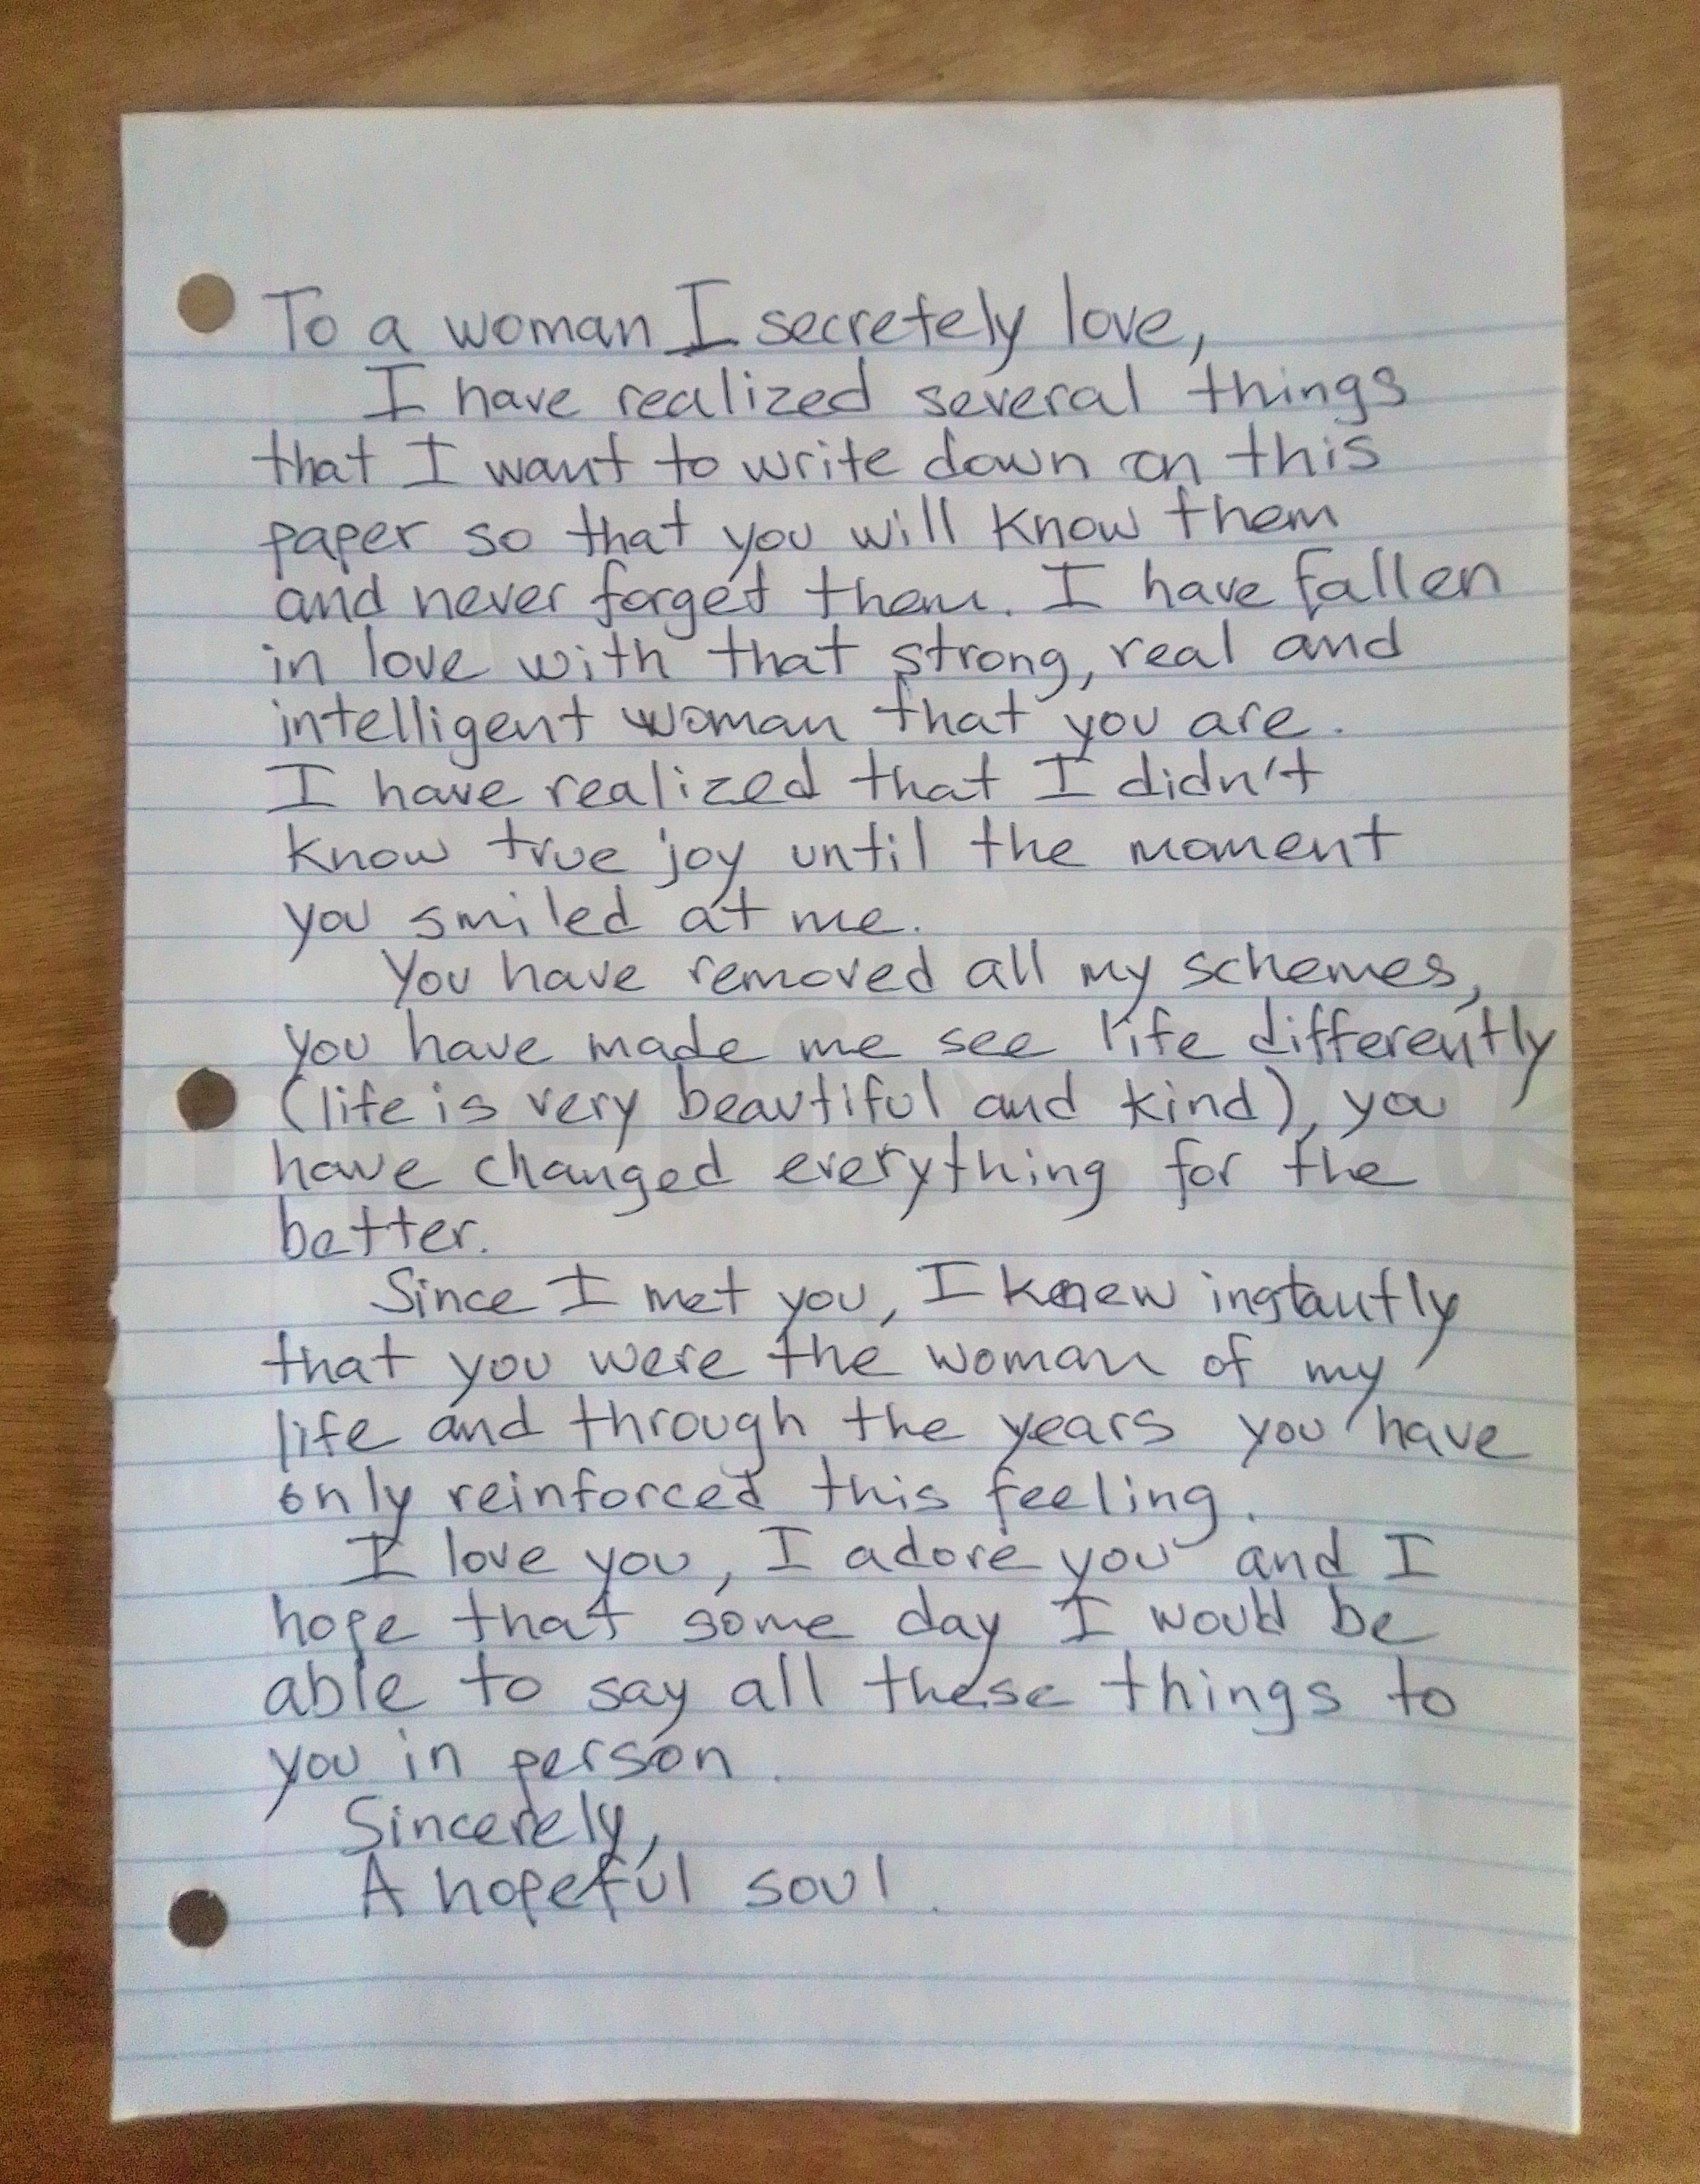 To a woman I secretely love,
I have realized several things
that I want to write down on this
paper so that you will know them
and never forget them. I have fallen
in love with that strong, real and
intelligent woman that you are.
I have realized that I didn't
know true joy until the moment
you smiled at me.
You have removed all my schemes,
you have made me see life differently
(life is very beautiful and kind), you
have changed everything for the
better.
Since I met you, I knew instantly
that you were the woman of my
life and through the years you have
only reinforced this feeling.
I love you, I adore you and I
hope that some day I would be
able to say all these things to
you in person.
Sincerely,
A hopeful soul.